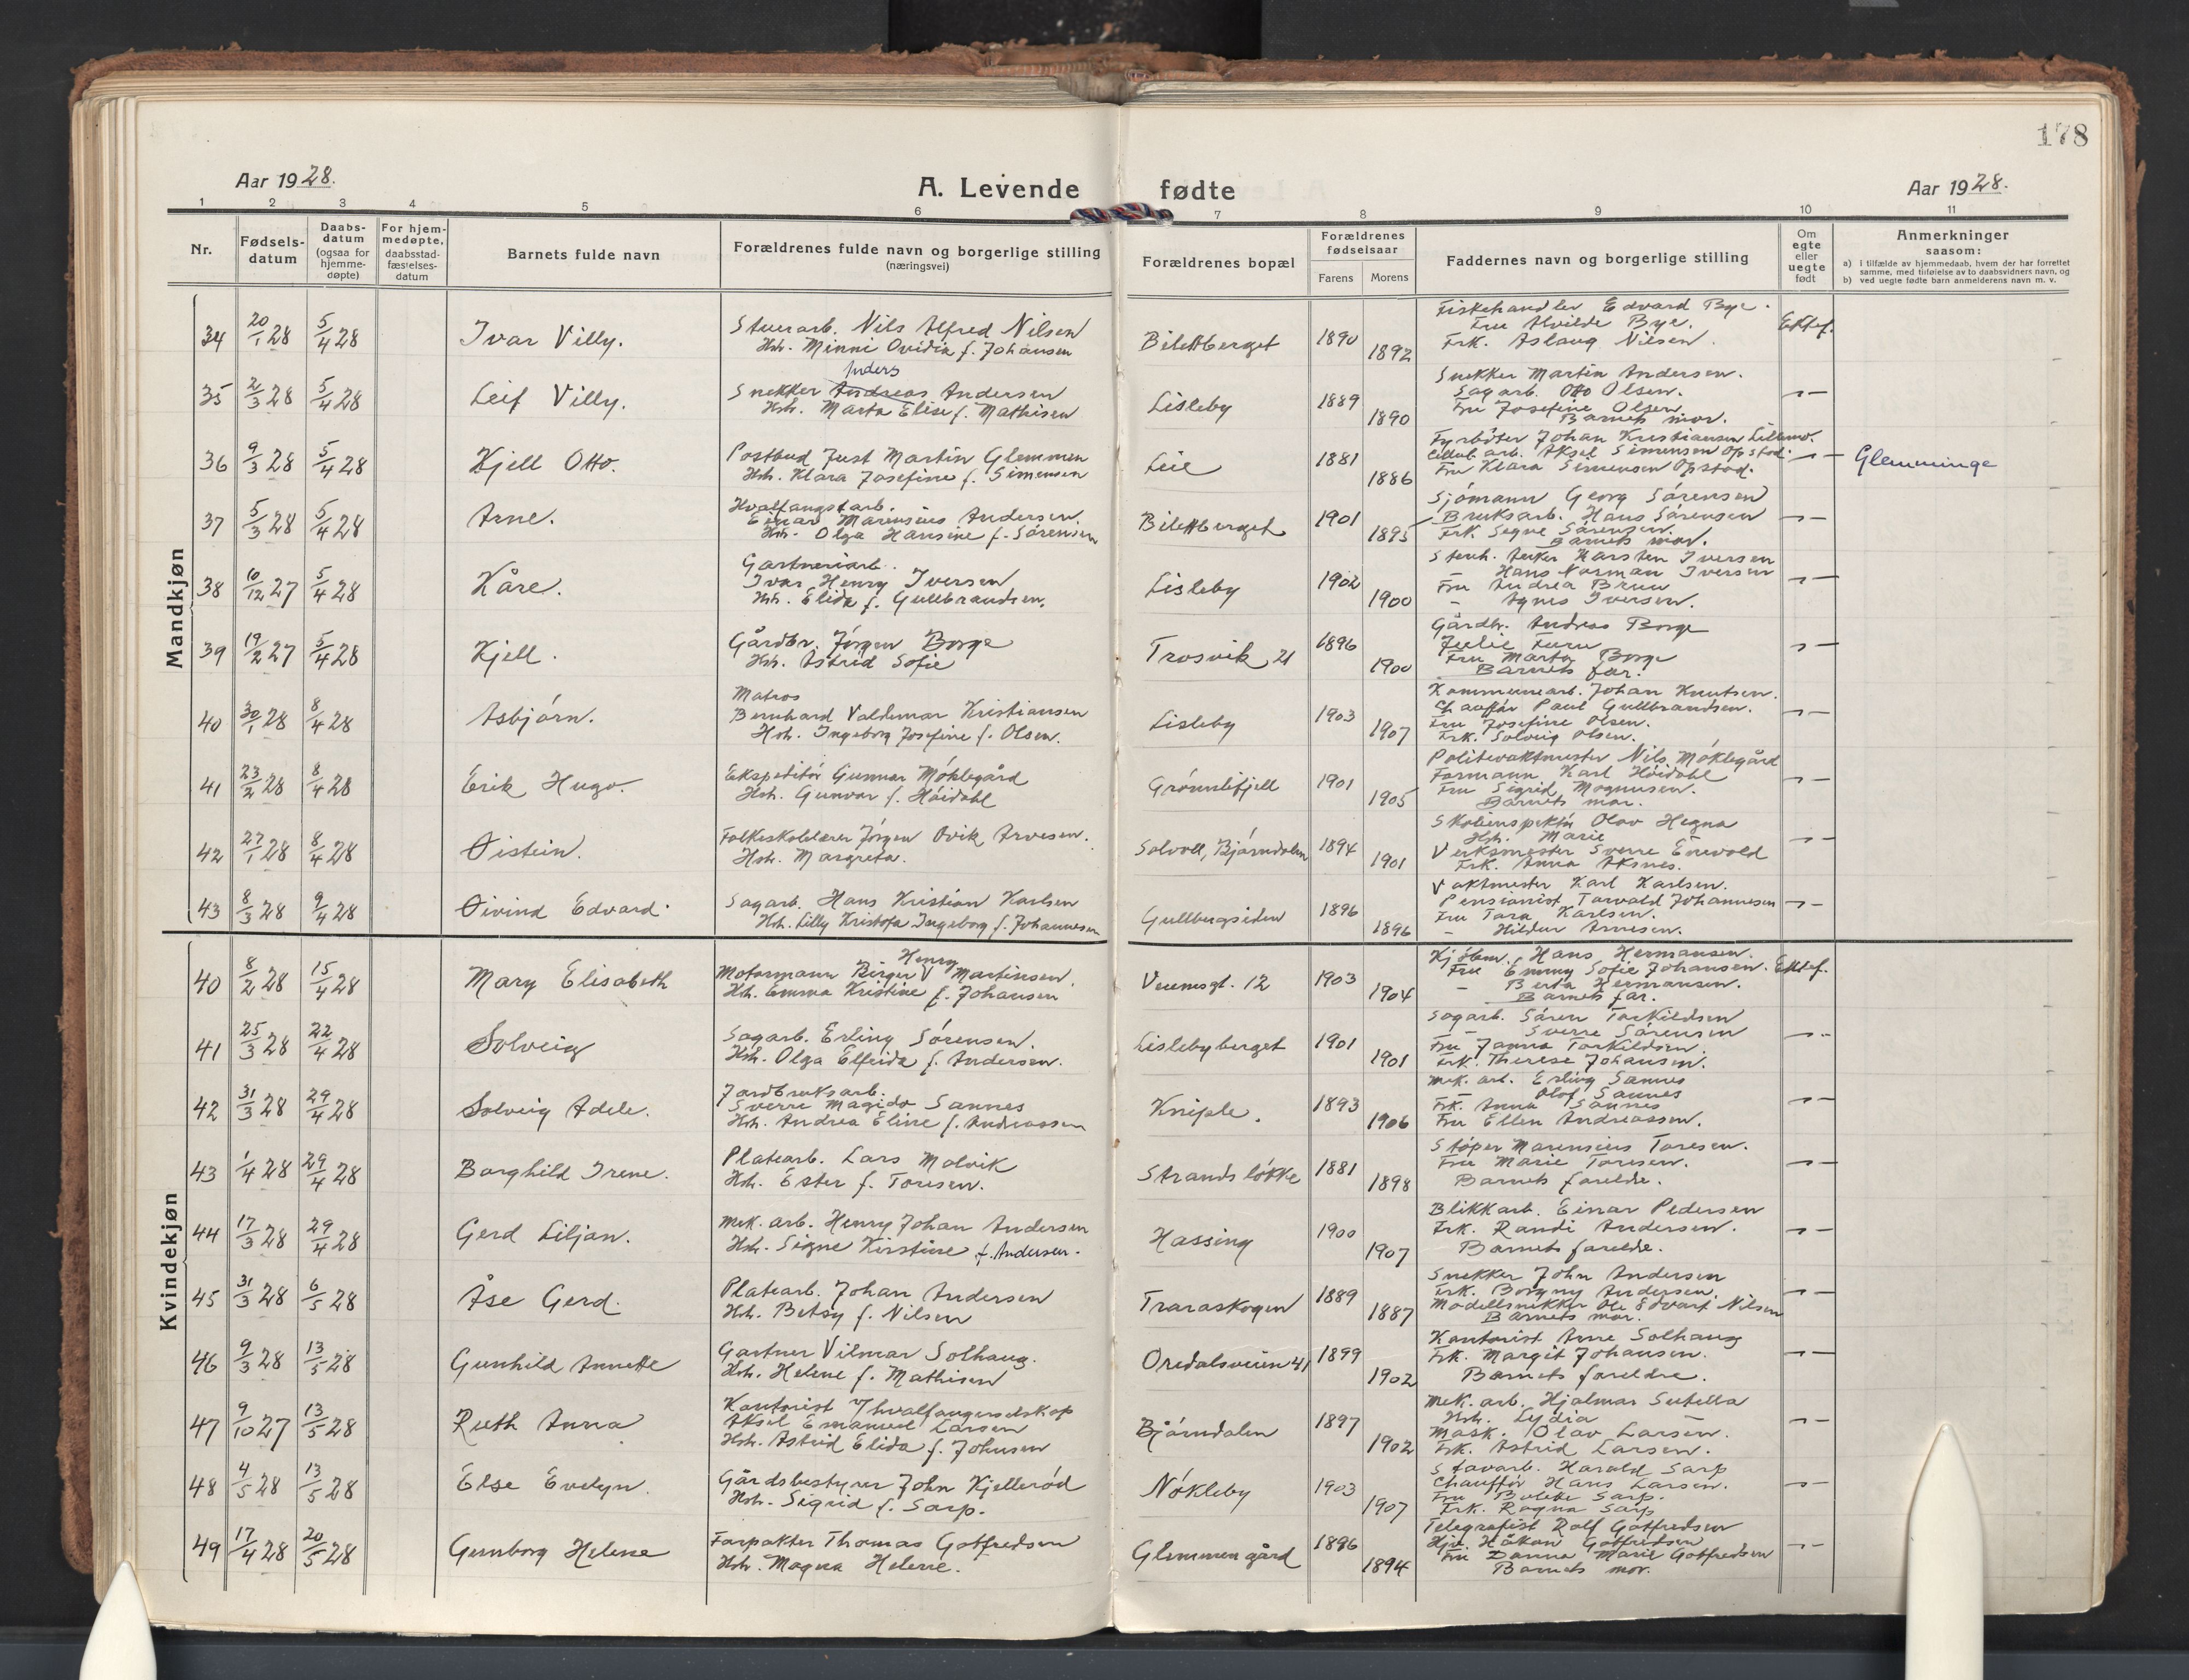 178
Aar 1928.
A. Levende fødte
Aar 1928.
1 2 3 4 5 6 7 8 9 10 11
Nr.
Fødsels-
datum
Daabs-
datum
(ogsaa for
hjemme-
døpte)
For hjem-
medøpte,
daabsstad-
fæstelses-
datum
Barnets fulde navn
Forældrenes fulde navn og borgerlige stilling
(næringsvei)
Forældrenes bopæl
Forældrenes
fødselsaar
Farens Morens
Faddernes navn og borgerlige stilling
Om
egte
eller
uegte
født
Anmerkninger
saasom:
a) i tilfælde av hjemmedaab, hvem der har forrettet
samme, med tilføielse av to daabsvidners navn, og
b) ved uegte fødte barn anmelderens navn m. v.
Mandkjøn
34 20/1 28 5/4 28 Ivar Villy.
Stuerarb. Nils Alfred Nilsen
Hst. Minni Ovidia f. Johansen
Bilettberget 1890 1892
Fiskehandler Edvard Bye.
Fru Alvilde Bye.
Frk. Aslaug Nilsen.
Ektef.
35 2/3 28 5/4 28 Leif Villy.
Anders
Snekker Andreas Andersen
Hst. Marta Elise f. Mathisen
Lisleby 1889 1890
Snekker Martin Andersen.
Sagarb. Otto Olsen.
Fru Josefine Olsen.
Barnets mor.
36 9/3 28 5/4 28 Kjell Otto.
Postbud Just Martin Glemmen
Hst. Klara Josefine f. Simensen
Leie 1881 1886
Fyrbøter Johan Kristiansen
Cellul. arb. Aksel Simensen Opstad.
Fru Klara Simensen Opstad.
Glemminge
37 5/3 28 5/4 28 Arne.
Hvalfangstarb.
Einar Marensius Andersen.
Hst. Olga Hansine f. Sørensen
Bilettberget 1901 1895
Sjømann Georg Sørensen
Bruksarb. Hans Sørensen
Frk. Signe Sørensen.
Barnets mor.
38 10/12 27 5/4 28 Kåre.
Gartneriarb.
Ivar Henry Iversen
Hst. Elida f. Gullbrandsen.
Lisleby 1902 1900
Karsten Iversen
— Hans Norman Iversen
Fru Andrea Bruu
— Agnes Iversen.
39 19/2 27 5/4 28 Kjell.
Gårdbr. Jørgen Borge
Hst. Astrid Sofie
Trosvik 21 1896 1900
Gårdbr. Andreas Borge
Julie Furu
Fru Marta Borge
Barnets far.
40 30/1 28 8/4 28 Asbjørn.
Matros
Bernhard Valdemar Kristiansen
Hst. Ingeborg Josefine f. Olsen.
Lisleby 1903 1907
Kommunearb. Johan Knutsen.
Chauffør Paul Gullbrandsen.
Fru Josefine Olsen.
Frk. Solveig Olsen.
41 23/2 28 8/4 28 Erik Hugo.
Ekspeditør Gunnar Møklegård
Hst. Gunvor f. Høidahl
Grønnlifjell 1901 1905
Politivaktmester Nils Møklegård
Formann Karl Høidahl
Fru Sigrid Magnusen.
Barnets mor.
42 27/1 28 8/4 28 Øistein.
Folkeskolelærer Jørgen Ovik Arvesen.
Hst. Margreta.
Solvoll, Bjørndalen 1894 1901
Skoleinspektør Olav Hegna
Hst. Marie
Verksmester Sverre Enevold
Frk. Anna Aksnes.
43 8/3 28 9/4 28 Øivind Edvard.
Sagarb. Hans Kristian Karlsen
Hst. Lilly Kristofa Ingeborg f. Johannesen
Gullbergsiden 1896 1896
Vaktmester Karl Karlsen.
Pensionist Torvald Johannesen
Fru Tora Karlsen.
— Hildur Arnesen.
Kvindekjøn
40 8/2 28 15/4 28 Mary Elisabeth
Henry
Motormann Birger V Martinsen.
Hst. Emma Kristine f. Johansen
Veumsgt. 12 1903 1904
Kjøbm. Hans Hermansen.
Fru Emmy Sofie Johansen.
— Berta Hermansen.
Barnets far.
Ektef.
41 25/3 28 22/4 28 Solveig
Sagarb. Erling Sørensen.
Hst. Olga Elfrida f. Andersen.
Lislebyberget 1901 1901
Sagarb. Søren Torkildsen
— Sverre Sørensen
Fru Janna Torkildsen.
Frk. Therese Johansen.
42 31/3 28 29/4 28 Solveig Adele.
Jordbruksarb.
Sverre Magido Sannes
Hst. Andrea Eline f. Andreassen
Kniple. 1893 1906
Mek. arb. Erling Sannes
— Olof Sannes
Frk. Anna Sannes
Fru Ellen Andreassen.
43 1/4 28 29/4 28 Borghild Irene.
Platearb. Lars Molvik
Hst. Ester f. Toresen.
Strandsløkke 1881 1898
Støper Marensius Toresen.
Fru Marie Toresen.
Barnets forelde.
44 17/3 28 29/4 28 Gerd Liljan.
Mek. arb. Henry Johan Andersen
Hst. Signe Kirstine f. Andersen.
Hassing 1900 1907
Blikkarb. Einar Pedersen
Frk. Randi Andersen.
Barnets forelde.
45 31/3 28 6/5 28 Åse Gerd.
Platearb. Johan Andersen
Hst. Betsy f. Nilsen
Traraskogen 1889 1887
Snekker John Andersen
Frk. Borgny Andersen.
Modellsnekker Ole Edvart Nilsen
Barnets mor.
46 9/3 28 13/5 28 Gunhild Annette
Gartner Vilmar Solhaug.
Hst. Helene f. Mathisen
Oredalsveien 41 1899 1902
Kontorist Arne Solhaug
Frk. Margit Johansen.
Barnets foreldre.
47 9/10 27 13/5 28 Ruth Anna
Kontorist i hvalfangerselskap
Aksel Emanuel Larsen
Hst. Astrid Elida f. Johnsen
Bjørndalen 1897 1902
Mek. arb. Hjalmar Sutella
Hst. Lydia
Mask. Olav Larsen.
Frk. Astrid Larsen.
48 4/5 28 13/5 28 Else Evelyn.
Gårdsbestyrer John Kjellerød
Hst. Sigrid f. Sarp.
Nøkleby 1903 1907
Harald Sarp
Chauffør Hans Larsen.
Fru Bolette Sarp.
Frk. Ragna Sarp
49 17/4 28 20/5 28 Gunborg Helene
Forpakter Thomas Gotfredsen
Hst. Magna Helene.
Glemmen gård 1896 1894
Telegrafist Rolf Gotfredsen
Håkon Gotfredsen
Fru Danna Marie Gotfredsen
Barnets mor.